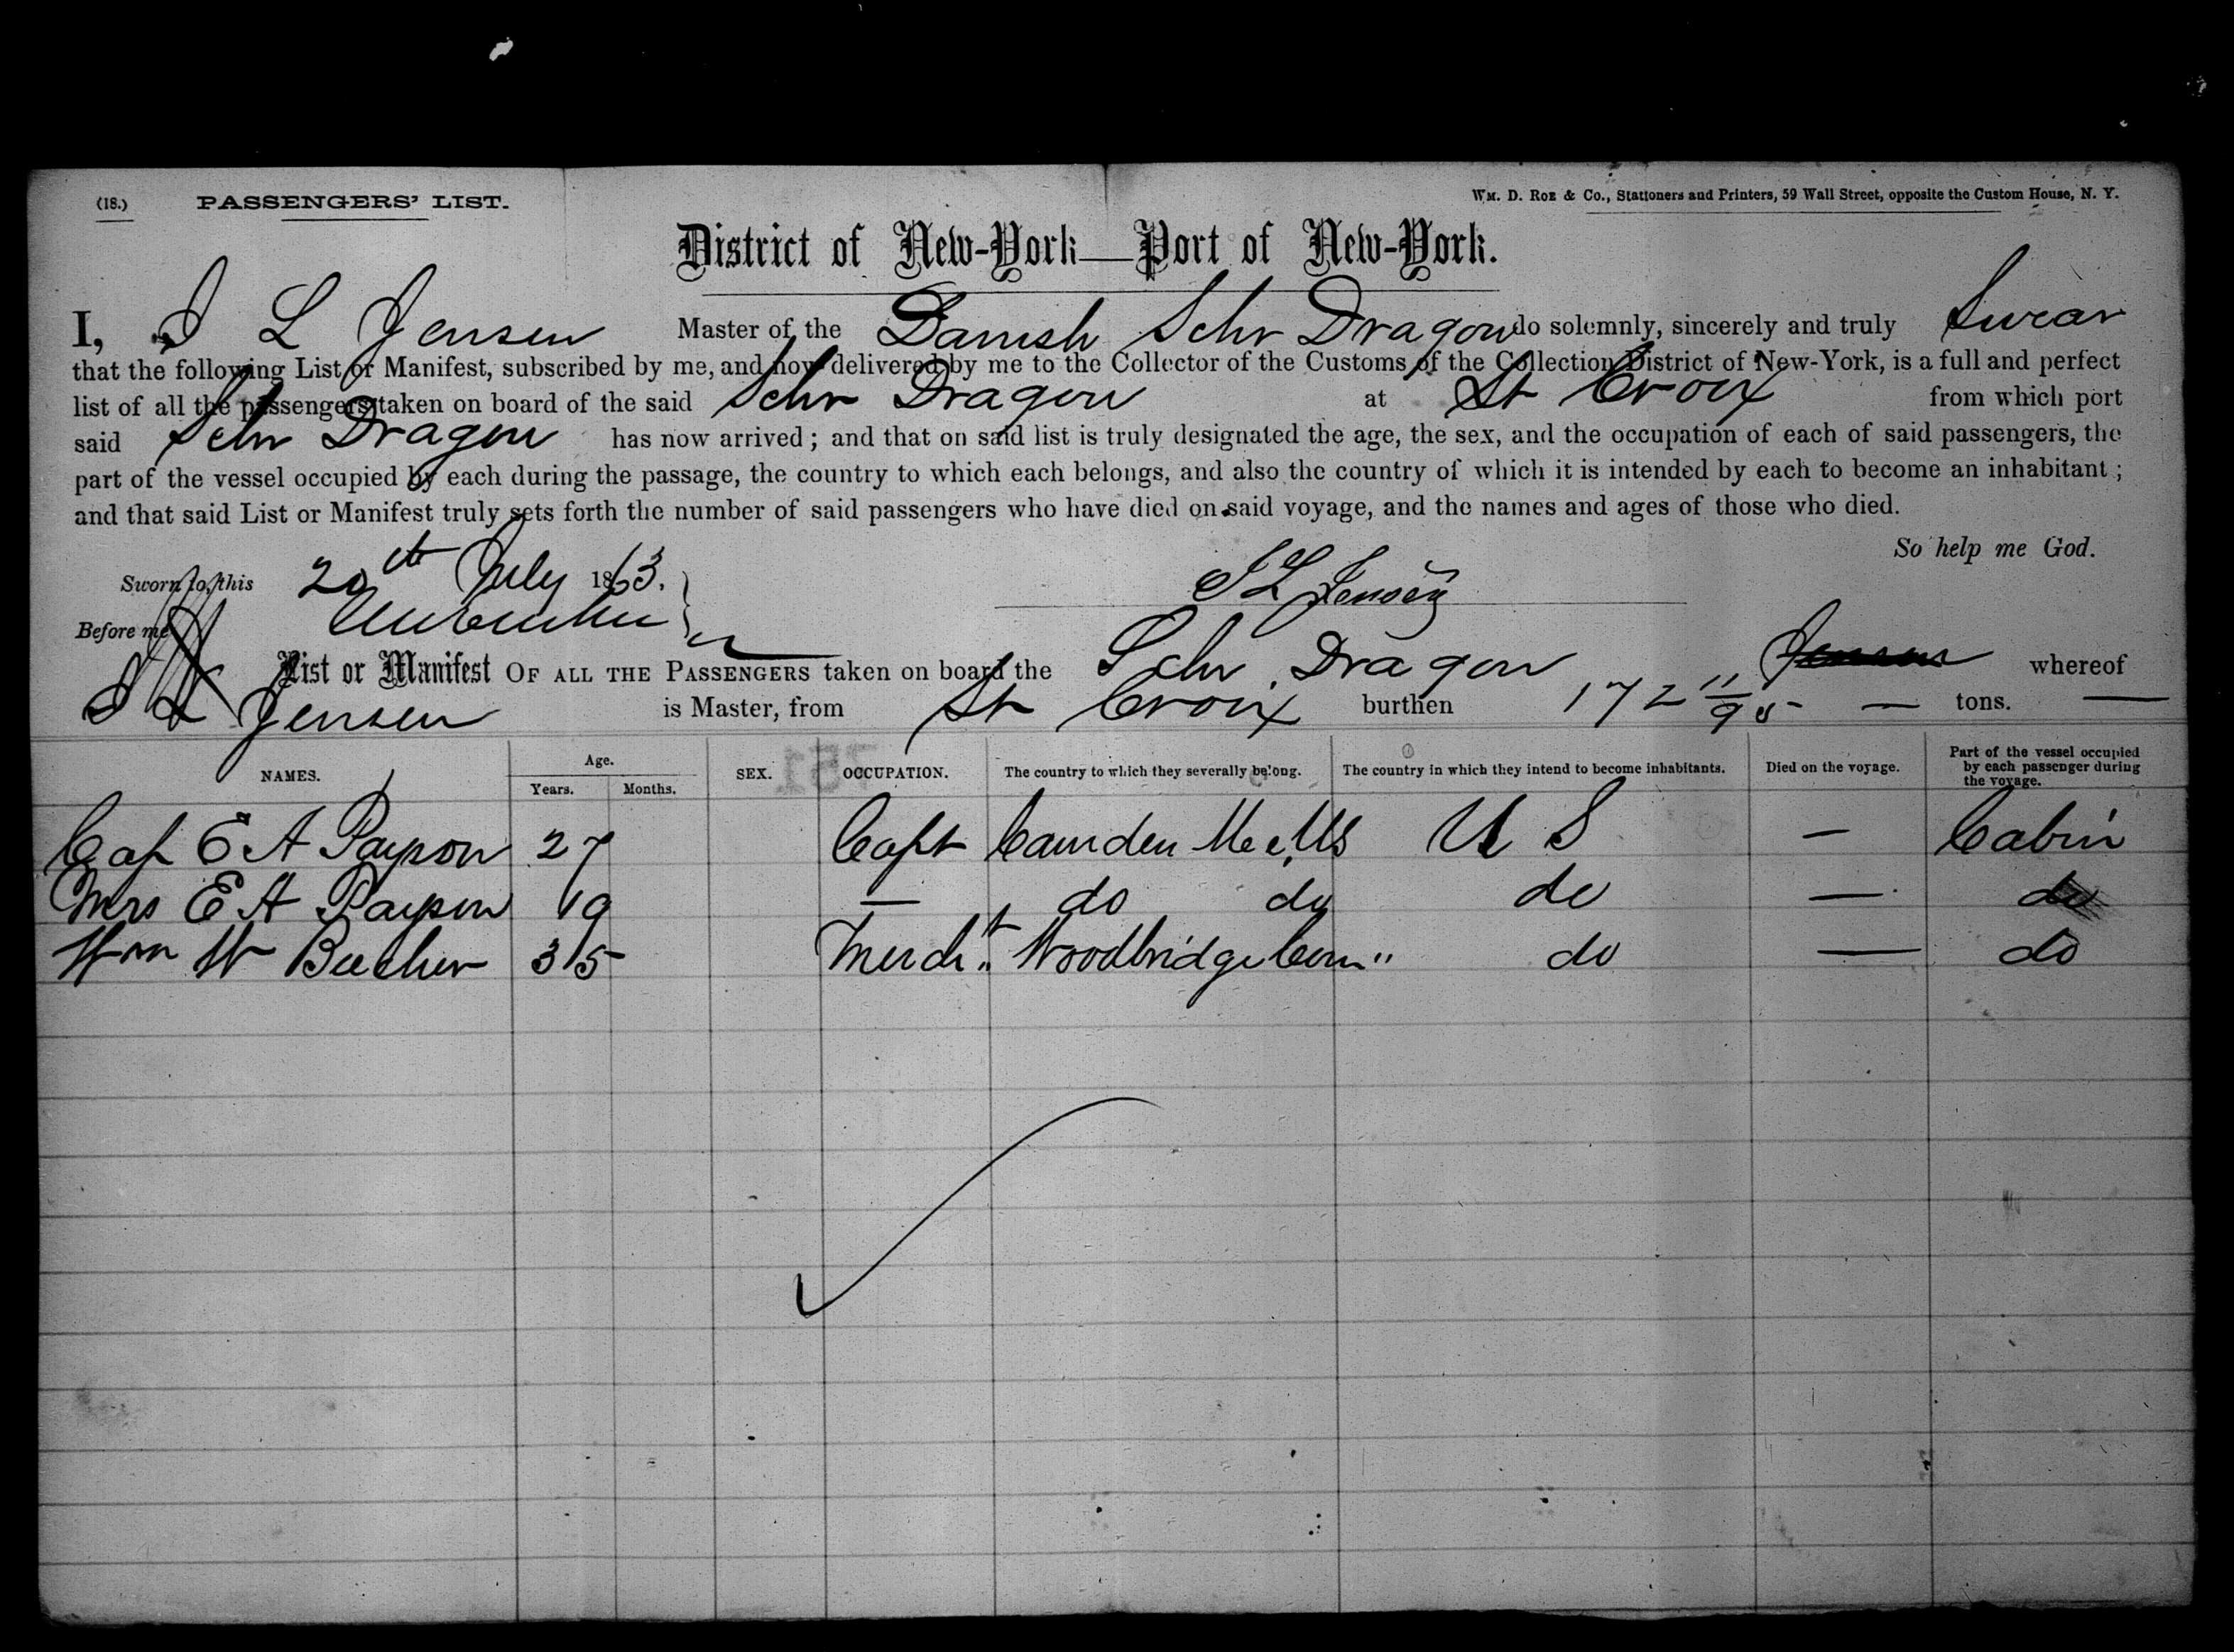 (18.) PASSENGERS' LIST. Wm. D. Roe & Co., Stationers and Printers, 59 Wall Street, opposite the Custom House, N. Y.
District of New-York—Port of New-York.
I, J L Jensen Master of the Danish Schr Dragon do solemnly, sincerely and truly Swear
that the following List or Manifest, subscribed by me, and now delivered by me to the Collector of the Customs of the Collection District of New-York, is a full and perfect
list of all the passengers taken on board of the said Schr Dragon at St Croix from which port
said Schr Dragon has now arrived; and that on said list is truly designated the age, the sex, and the occupation of each of said passengers, the
part of the vessel occupied by each during the passage, the country to which each belongs, and also the country of which it is intended by each to become an inhabitant;
and that said List or Manifest truly sets forth the number of said passengers who have died on said voyage, and the names and ages of those who died.
So help me God.
Sworn to, this 20th July 1863. J L Jensen
Before me
List or Manifest OF ALL THE PASSENGERS taken on board the Schr Dragon Jensen whereof
J L Jensen is Master, from St Croix burthen 172 11/95 — tons. —
NAMES. Age. Years. Months. SEX. OCCUPATION. The country to which they severally belong. The country in which they intend to become inhabitants. Died on the voyage. Part of the vessel occupied by each passenger during the voyage.
Cap E A Payson 27 Capt Camden Me U S — Cabin
Mrs E A Payson 19 — do do do — do
Wm W Beecher 35 Mercht " Woodbridge Conn " do — do